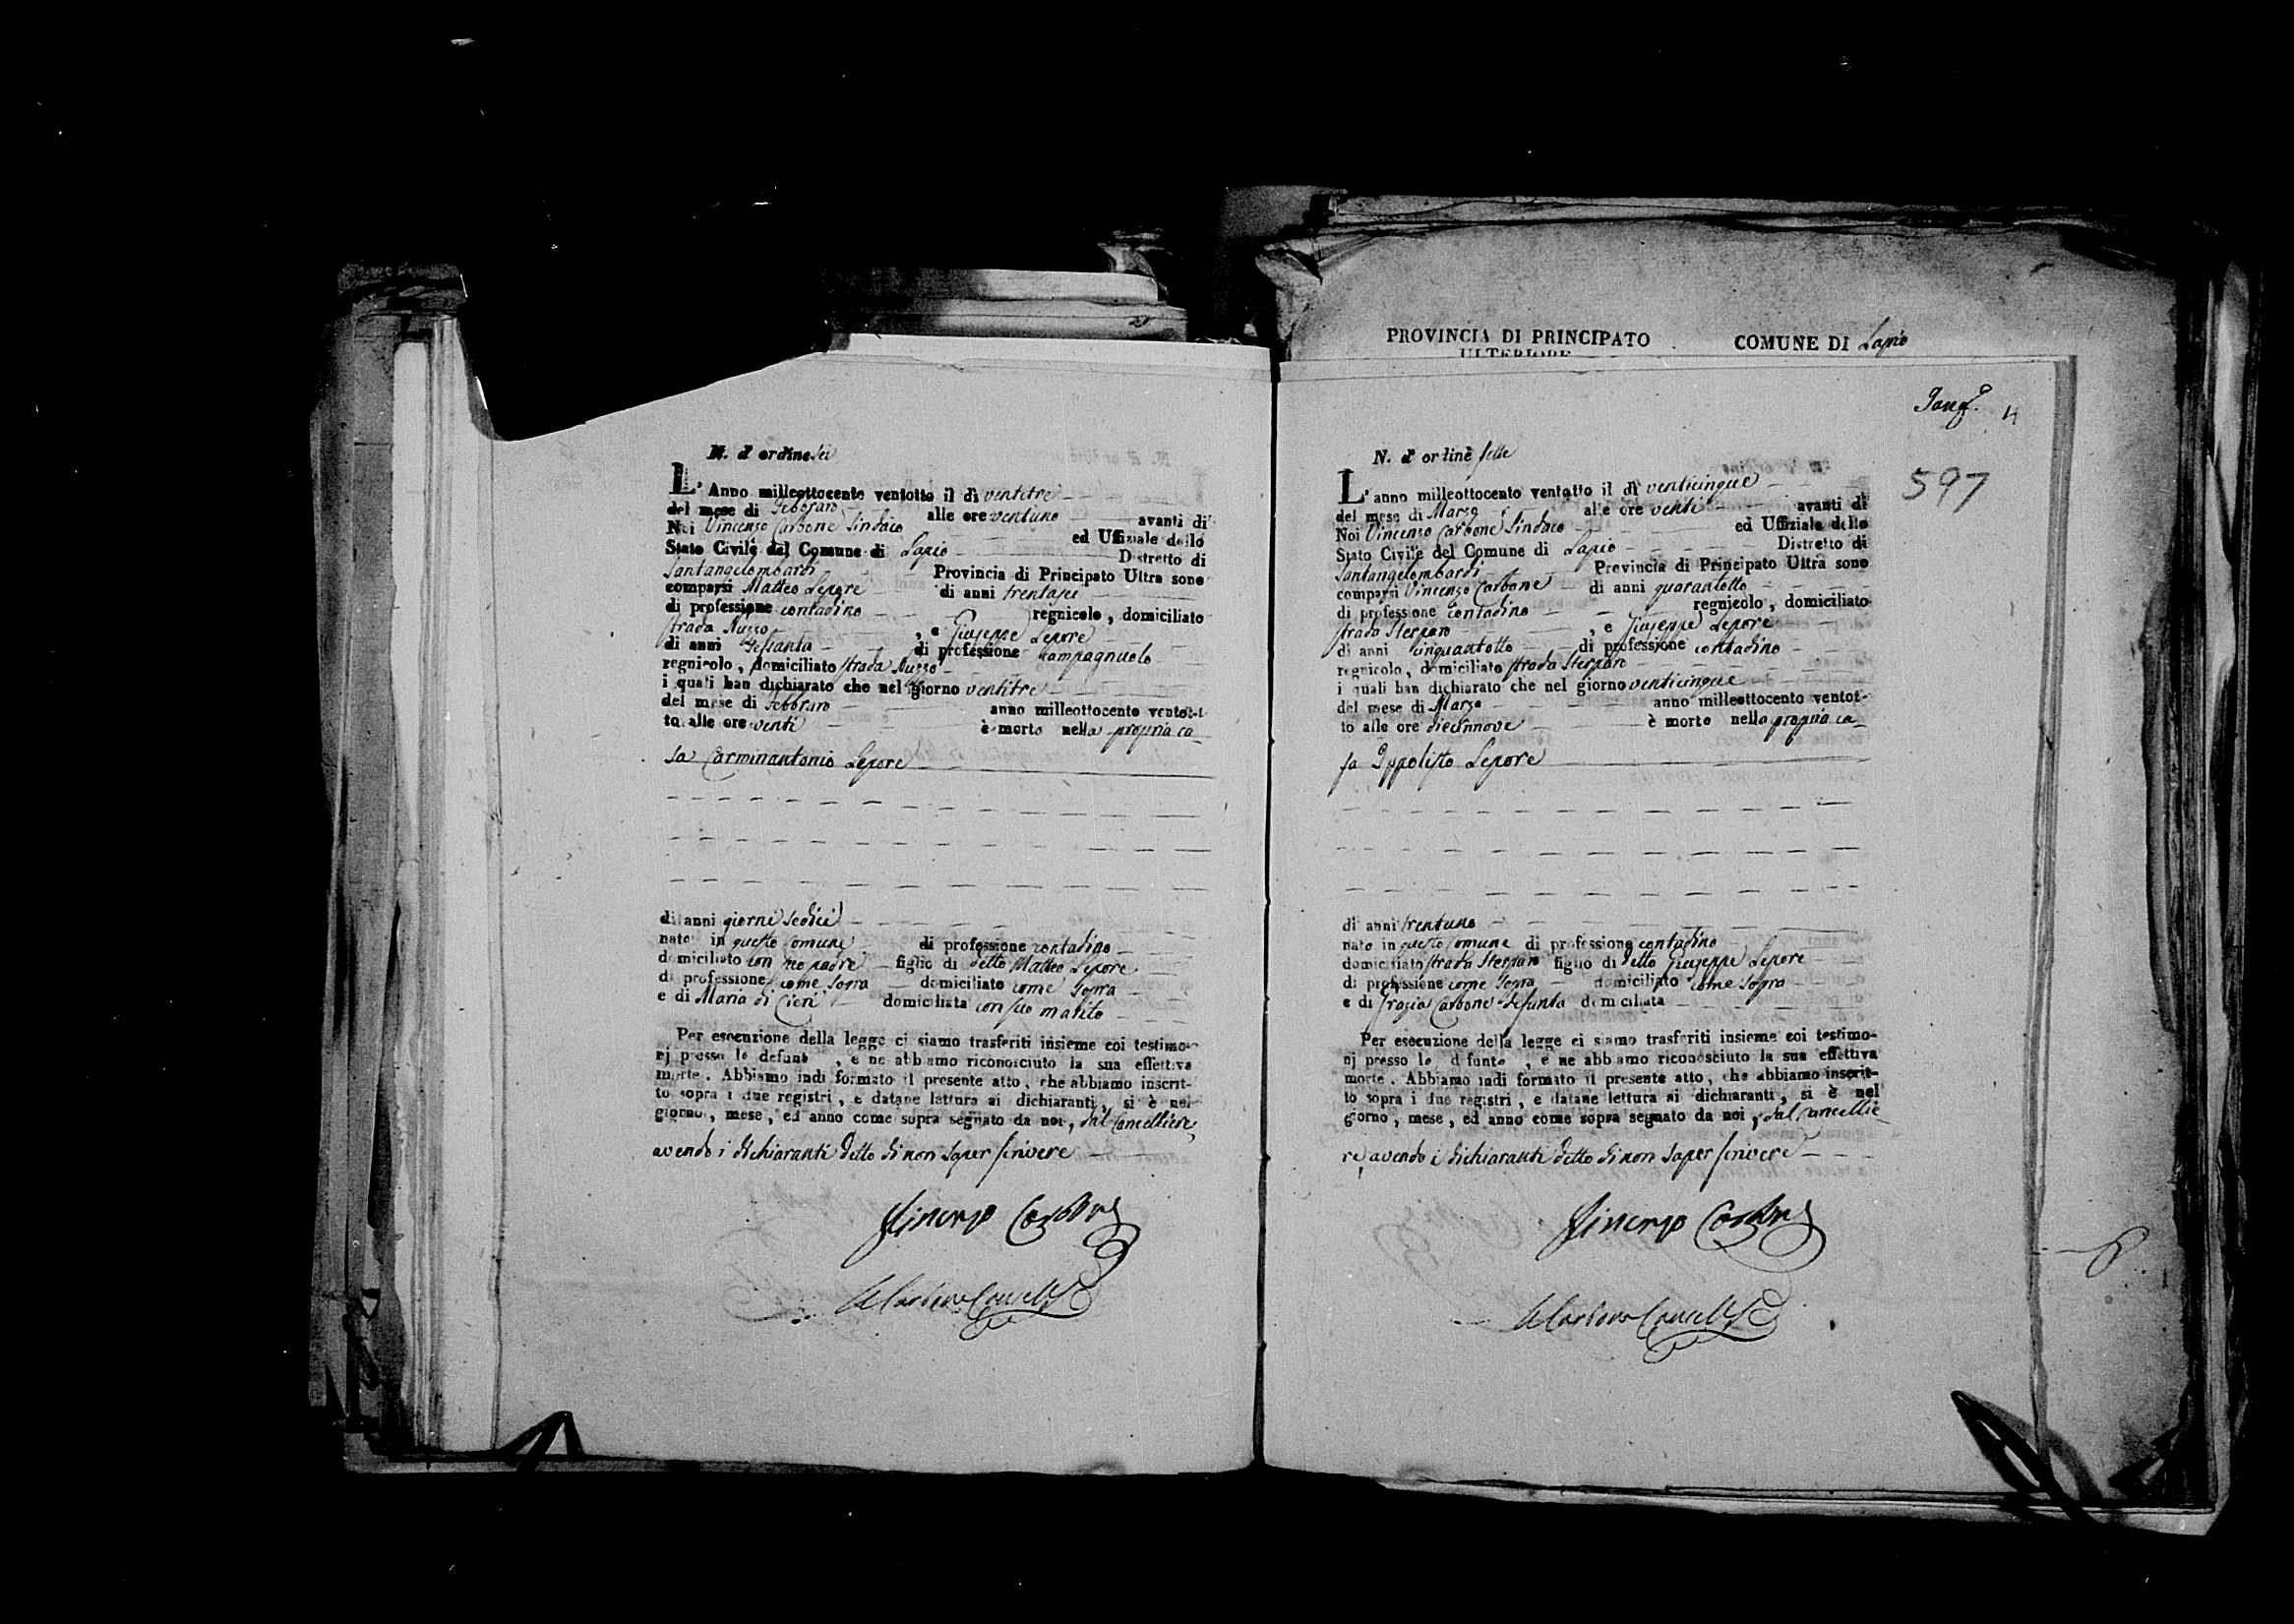 N. d'ordine sei
L'Anno milleottocento ventotto il dì ventitre
del mese di Febbraro alle ore ventuno avanti di
Noi Vincenzo Carbone Sindaco ed Uffiziale dello
Stato Civile del Comune di Lapio Distretto di
Santangelombardi Provincia di Principato Ultra sono
comparsi Matteo Lepore di anni trentasei
di professione contadino regnicolo, domiciliato
strada Nuzzo, e Giuseppe Lepore
di anni sessanta di professione campagnuolo
regnicolo, domiciliato strada Nuzzo
i quali han dichiarato che nel giorno ventitre
del mese di Febbraro anno milleottocento ventot-
to alle ore venti è morto nella propria ca
sa Carminantonio Lepore
di anni giorni sedici
nato in questo comune di professione contadino
domiciliato con suo padre figlio di detto Matteo Lepore
di professione come sopra domiciliato come sopra
e di Maria di Cieri domiciliata con suo marito
Per esecuzione della legge ci siamo trasferiti insieme coi testimo-
nj presso lo defunto, e ne abbiamo riconosciuto la sua effettiva
morte. Abbiamo indi formato il presente atto, che abbiamo inscrit-
to sopra i due registri, e datane lettura ai dichiaranti, si è nel
giorno, mese, ed anno come sopra segnato da noi, dal Cancelliere
avendo i dichiaranti detto di non saper scrivere
Vincenzo Carbone
Carbone Cancell
PROVINCIA DI PRINCIPATO COMUNE DI Lapio
ULTERIORE
4
597
N. d'ordine sette
L'anno milleottocento ventotto il dì venticinque
del mese di Marzo alle ore venti avanti di
Noi Vincenzo Carbone Sindaco ed Uffiziale dello
Stato Civile del Comune di Lapio Distretto di
Santangelombardi Provincia di Principato Ultra sono
comparsi Vincenzo Carbone di anni quarantotto
di professione contadino regnicolo, domiciliato
strada Sterparo, e Giuseppe Lepore
di anni cinquantotto di professione contadino
regnicolo, domiciliato strada Sterparo
i quali han dichiarato che nel giorno venticinque
del mese di Marzo anno milleottocento ventot-
to alle ore diecinnove è morto nella propria ca
sa Ippolisto Lepore
di anni trentuno
nato in questo comune di professione contadino
domiciliato strada Sterparo figlio di detto Giuseppe Lepore
di professione come sopra domiciliato come sopra
e di Grazia Carbone defunta domiciliata
Per esecuzione della legge ci siamo trasferiti insieme coi testimo-
nj presso lo defunto, e ne abbiamo riconosciuto la sua effettiva
morte. Abbiamo indi formato il presente atto, che abbiamo inscrit-
to sopra i due registri, e datane lettura ai dichiaranti, si è nel
giorno, mese, ed anno come sopra segnato da noi, dal Cancellie
re, avendo i dichiaranti detto di non saper scrivere
Vincenzo Carbone
Carbone Cancell